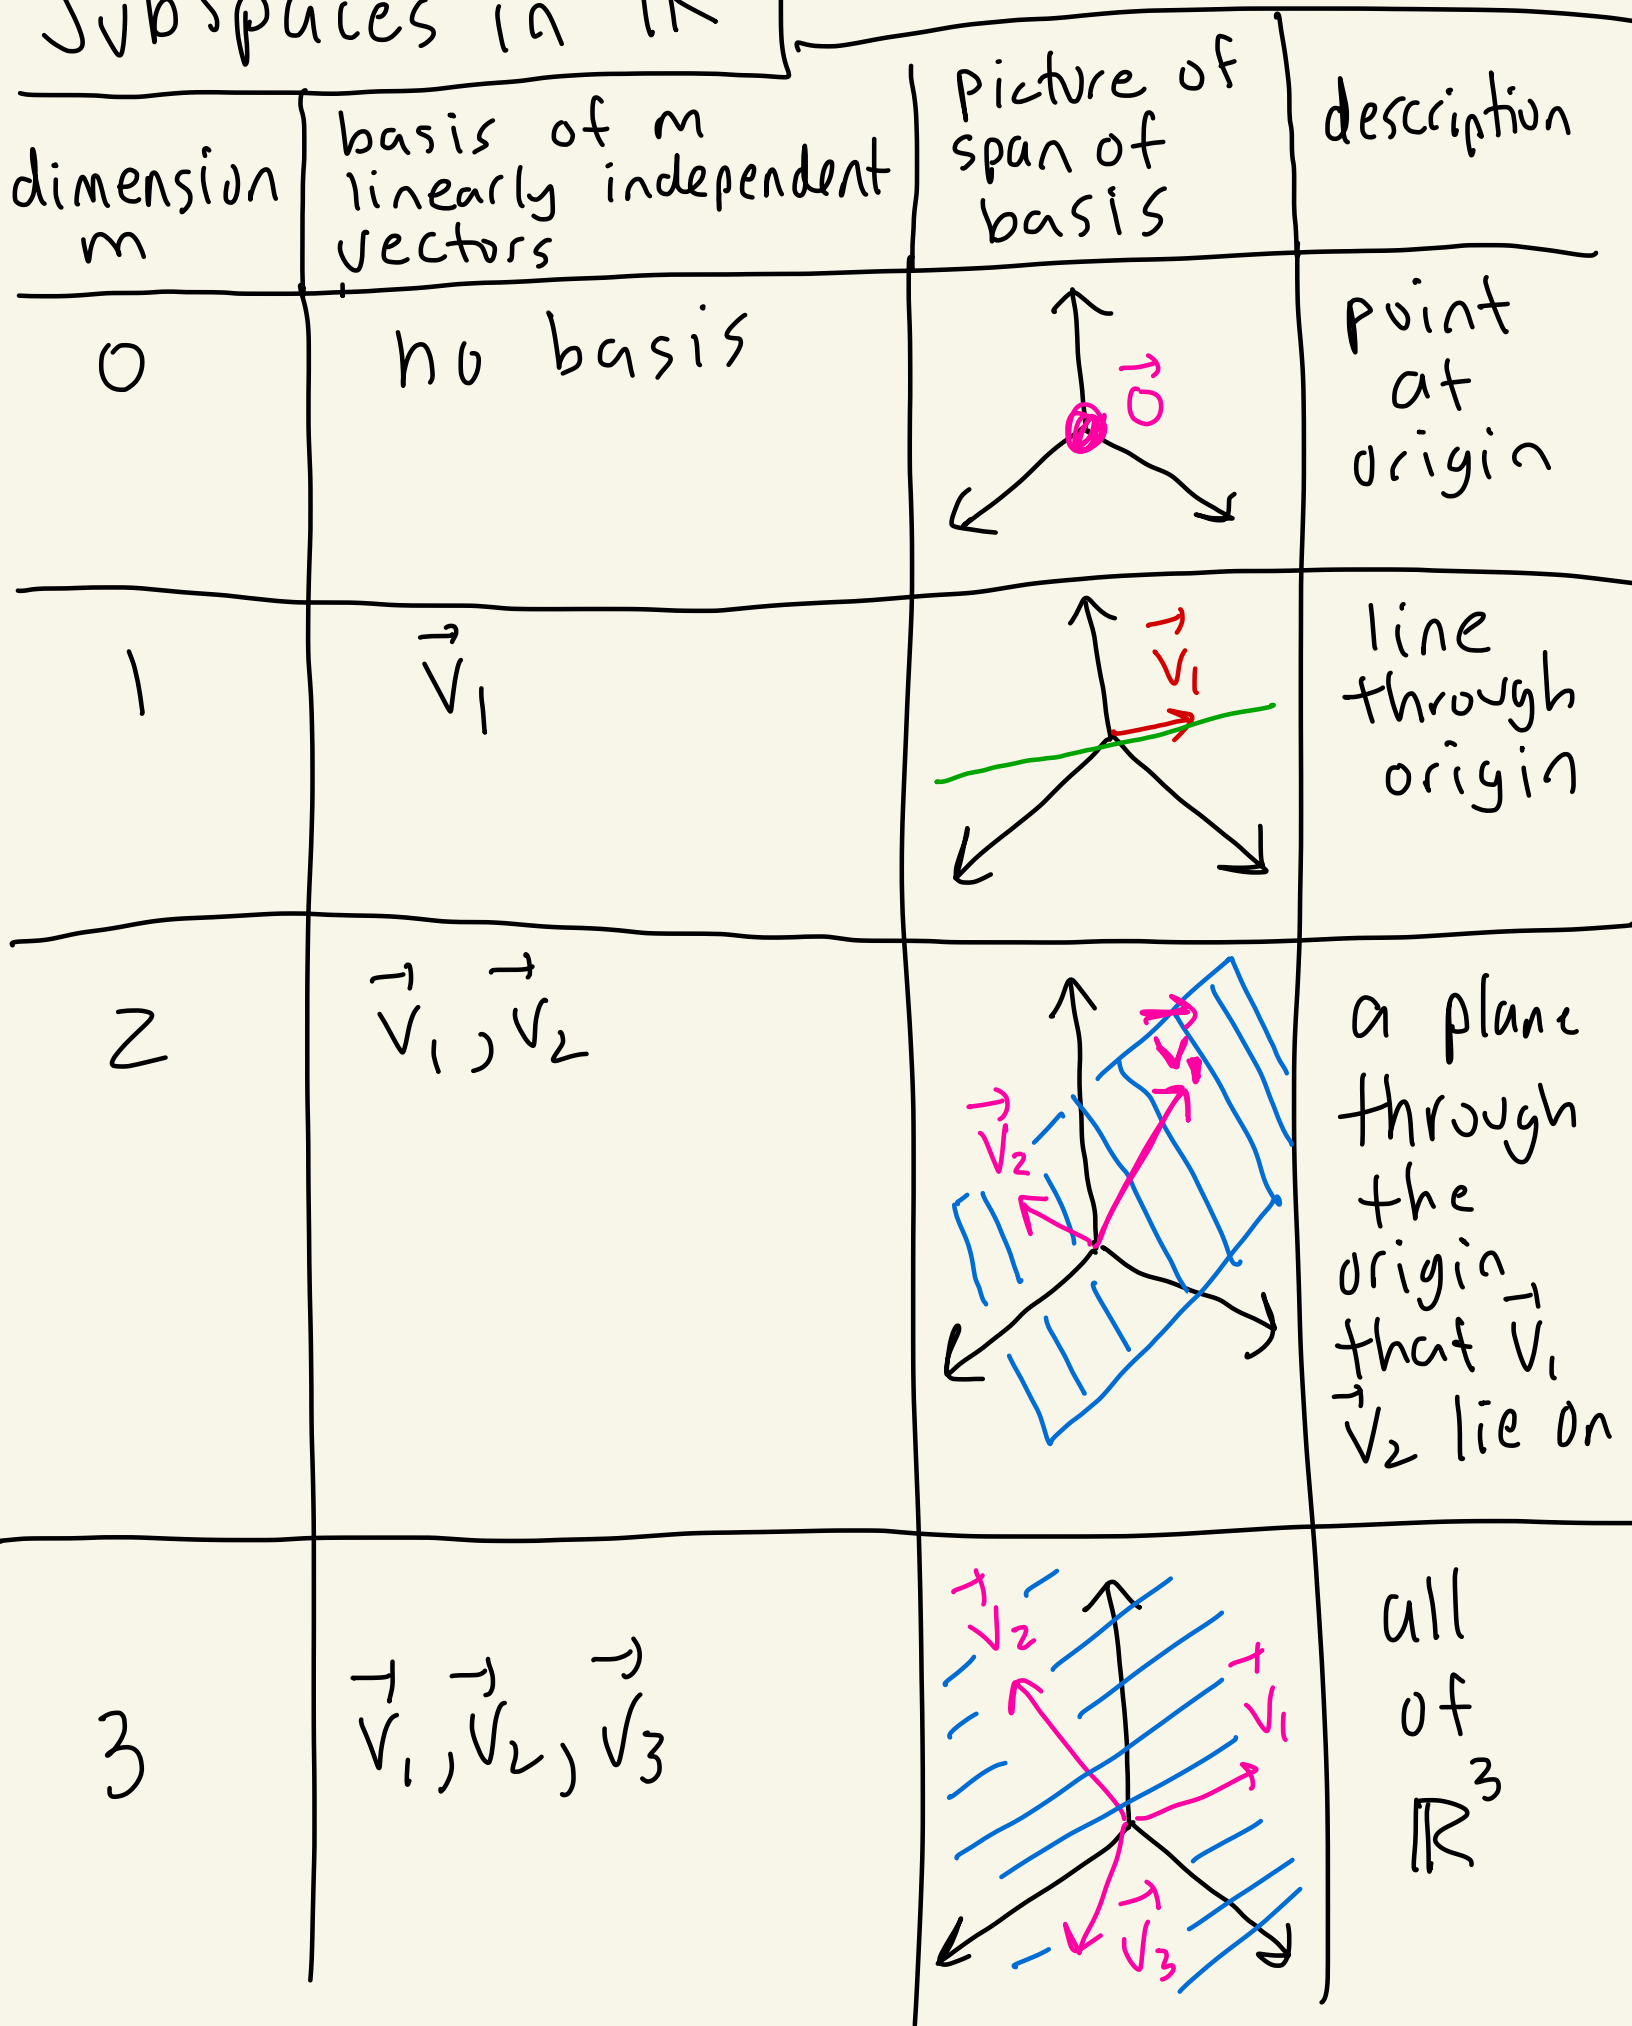 Subspaces in ℝ
dimension
m
basis of m
linearly independent
vectors
picture of
span of
basis
description
0
no basis
0⃗
point
at
origin
1
v⃗₁
v⃗₁
line
through
origin
2
v⃗₁, v⃗₂
v⃗₁
v⃗₂
a plane
through
the
origin
that v⃗₁
v⃗₂ lie on
3
v⃗₁, v⃗₂, v⃗₃
v⃗₂
v⃗₁
v⃗₃
all
of
ℝ³